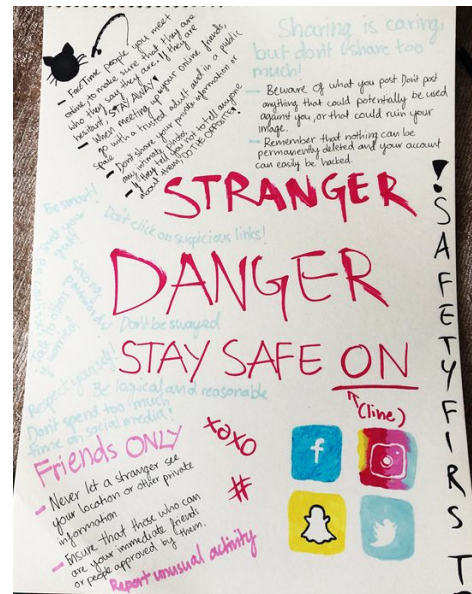 - FaceTime people you meet
online, to make sure that they are
who they say they are. If they are
hesitant, STAY AWAY!
- When meeting up your online friends,
go with a trusted adult and in a public
space
- Don't share your private information or
any intimate photos
- If they tell you not to tell anyone
about them, DO THE OPPOSITE!
Sharing is caring,
but don't share too
much!
- Beware of what you post. Don't post
anything that could potentially be used
against you, or that could ruin your
image.
- Remember that nothing can be
permanently deleted and your account
can easily be hacked.
STRANGER
DANGER
STAY SAFE ON
(line)
! SAFETY FIRST
Be smart!
Don't click on suspicious links!
Trust your
gut!
strong
passwords
Talk to
if worried
Don't be swayed
Respect
Be logical and reasonable
Don't spend too much
time on social media!
Friends ONLY
- Never let a stranger see
your location or other private
information
- Ensure that those who can
are your immediate friends
or people approved by them.
Report unusual activity
xoxo
#
f